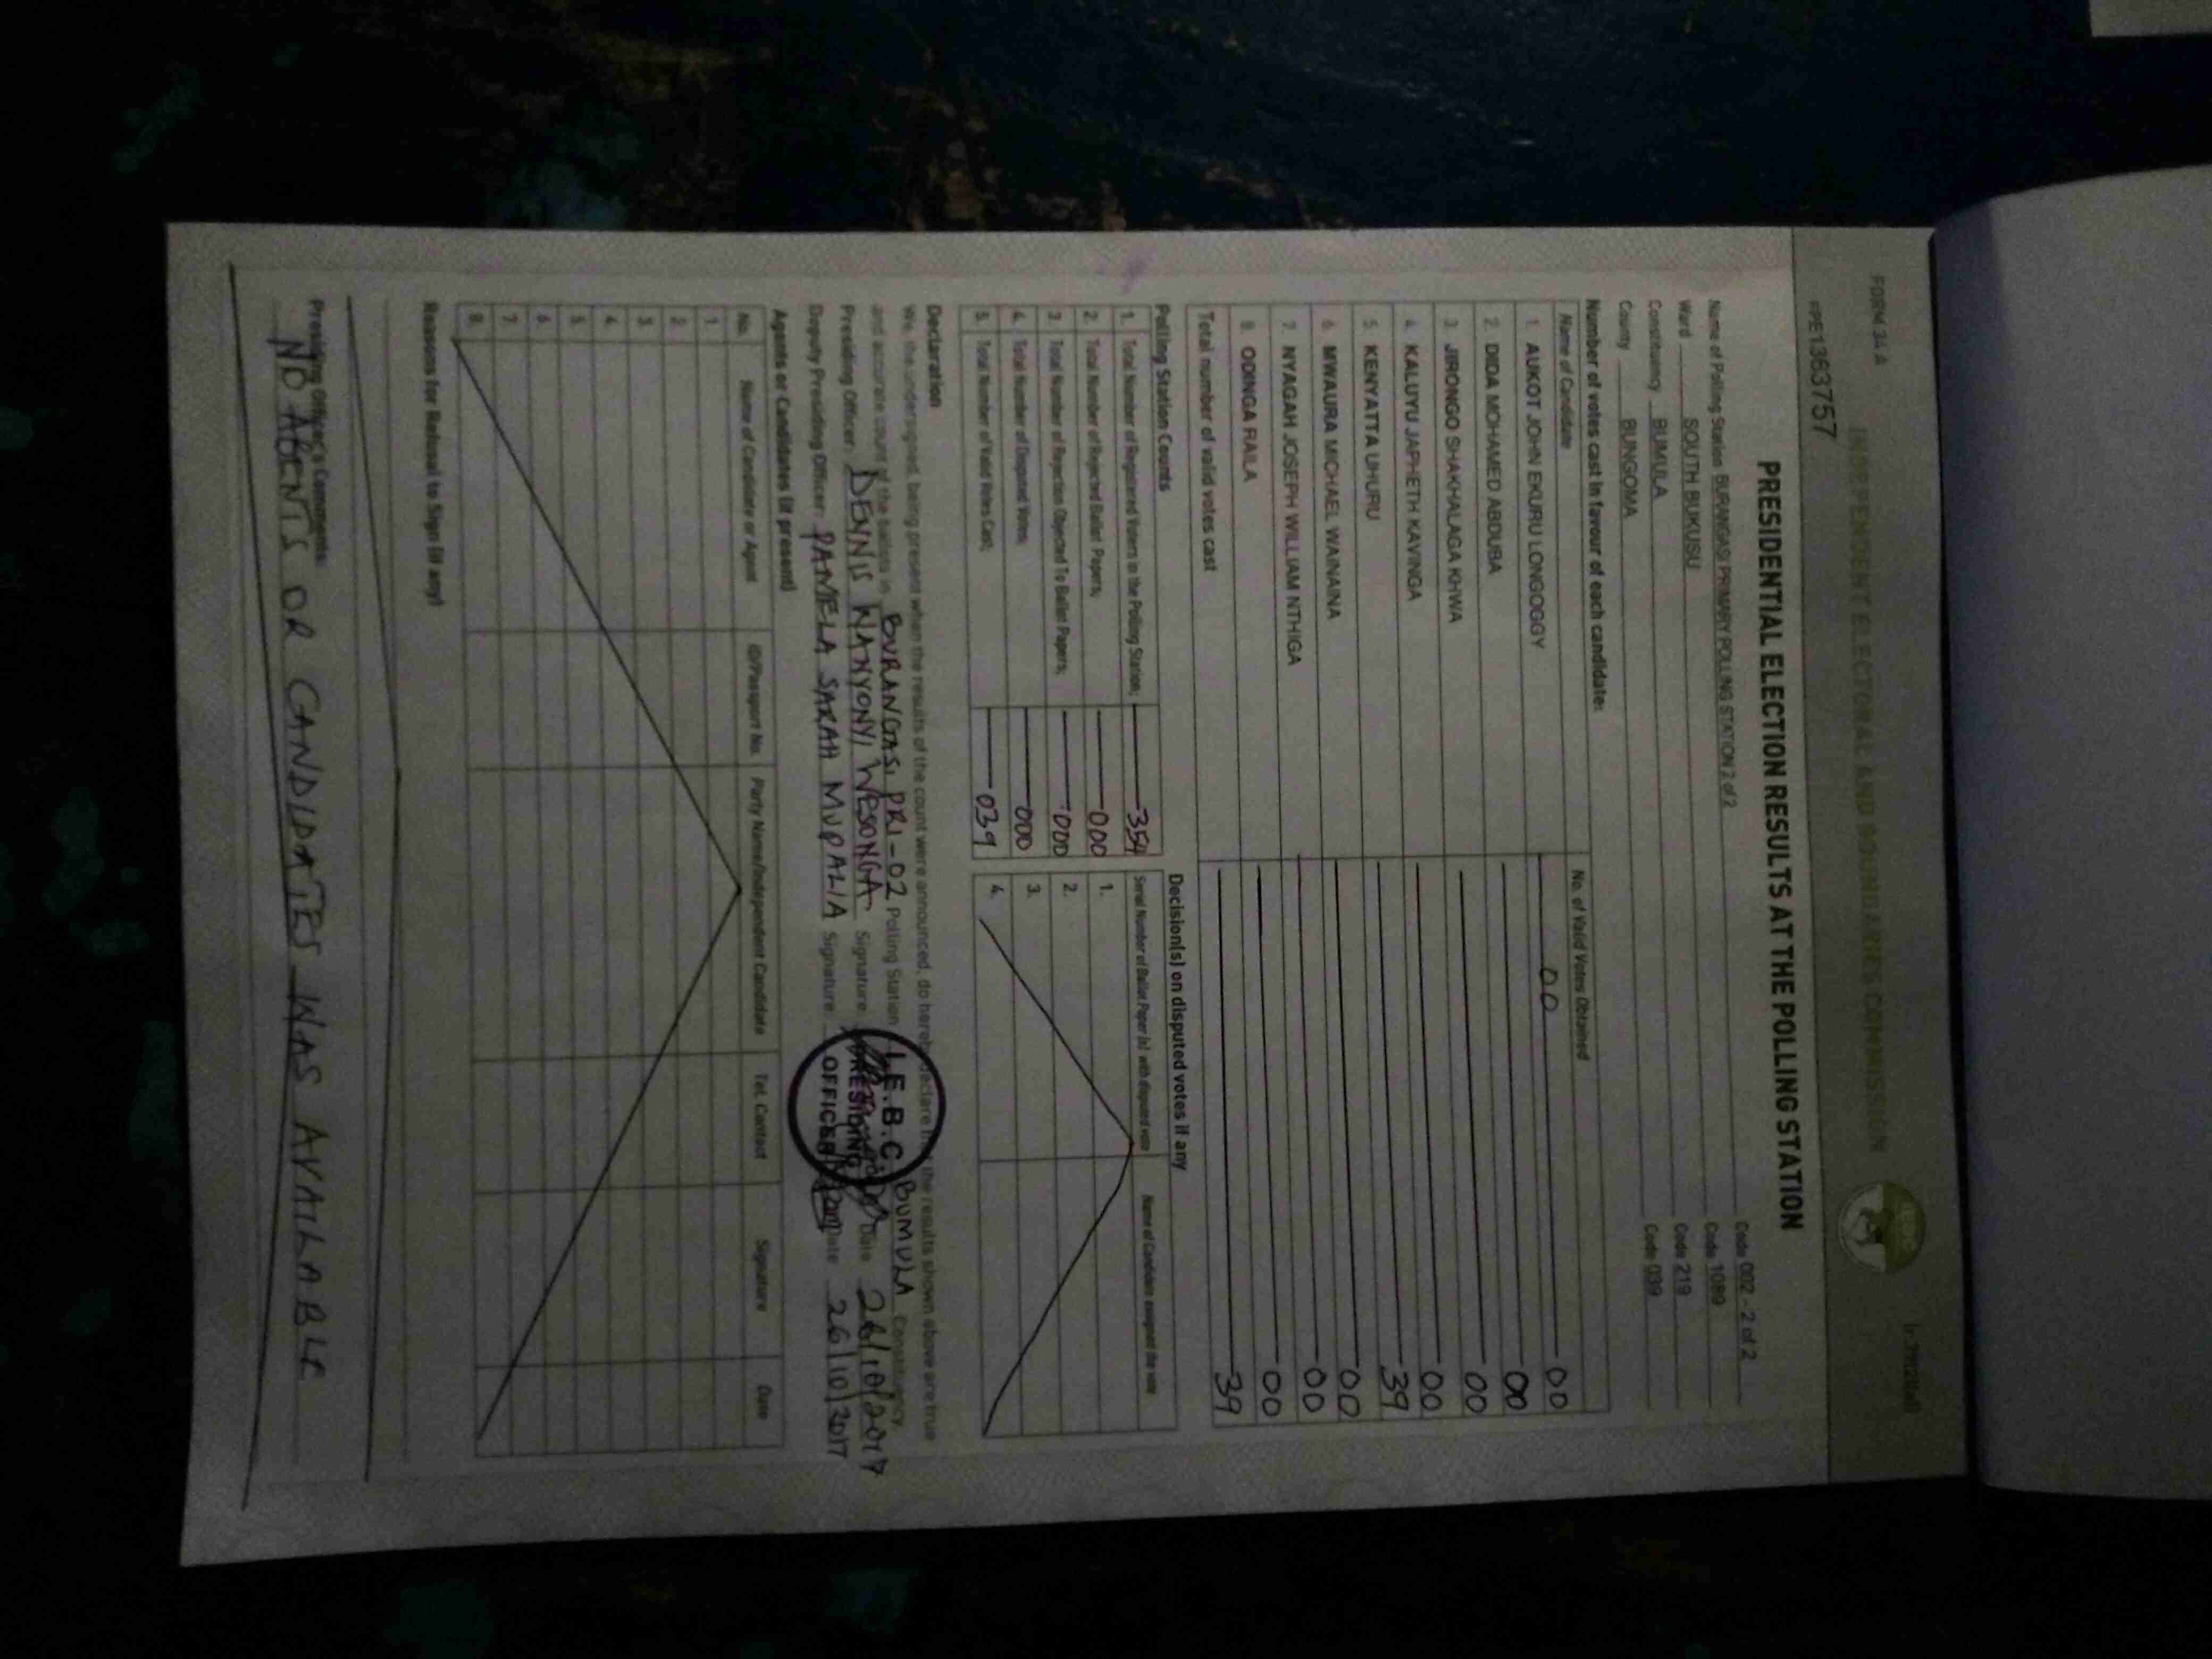 FORM 34 A
INDEPENDENT ELECTORAL AND BOUNDARIES COMMISSION
PPE1363757
PRESIDENTIAL ELECTION RESULTS AT THE POLLING STATION
Name of Polling Station BURANGASI PRIMARY POLLING STATION 2 of 2 Code 002 - 2 of 2
Ward SOUTH BUKUSU Code 1089
Constituency BUMULA Code 219
County BUNGOMA Code 039
Number of votes cast in favour of each candidate:
Name of Candidate No. of Valid Votes Obtained
1. AUKOT JOHN EKURU LONGOGGY 00 00
2. DIDA MOHAMED ABDUBA 00
3. JIRONGO SHAKHALAGA KHWA 00
4. KALUYU JAPHETH KAVINGA 00
5. KENYATTA UHURU 39
6. MWAURA MICHAEL WAINAINA 00
7. NYAGAH JOSEPH WILLIAM NTHIGA 00
8. ODINGA RAILA 00
Total number of valid votes cast 39
Polling Station Counts
1. Total Number of Registered Voters in the Polling Station; 354
2. Total Number of Rejected Ballot Papers; 000
3. Total Number of Rejection Objected To Ballot Papers; 000
4. Total Number of Disputed Votes; 000
5. Total Number of Valid Votes Cast; 039
Decision(s) on disputed votes if any
Serial Number of Ballot Paper (s) with disputed vote Name of Candidate assigned the vote
1.
2.
3.
4.
Declaration
We, the undersigned, being present when the results of the count were announced, do hereby declare that the results shown above are true
and accurate count of the ballots in BURANGASI PRI-02 Polling Station BUMULA Constituency
Presiding Officer DENNIS WANYONYI WESONGA Signature Date 26/10/2017
Deputy Presiding Officer: PAMELA SARAH MUPALIA Signature Date 26/10/2017
I.E.B.C.
PRESIDING
OFFICER
Agents or Candidates (if present)
No. Name of Candidate or Agent ID/Passport No. Party Name/Independent Candidate Tel. Contact Signature Date
1.
2.
3.
4.
5.
6.
7.
8.
Reasons for Refusal to Sign (if any)
Presiding Officer's Comments:
NO AGENTS OR CANDIDATES WAS AVAILABLE